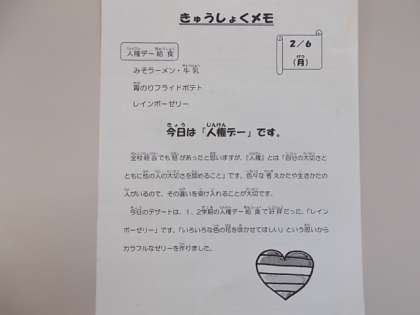 きゅうしょくメモ
2/6
(月)
人権デー給食
みそラーメン・牛乳
青のりフライドポテト
レインボーゼリー
今日は「人権デー」です。
全校朝会でも話があったと思いますが、「人権」とは「自分の大切さと
ともに他の人の大切さを認めること」です。色々な考えかたや生きかたの
人がいるので、その違いを受け入れることが大切です。
今日のデザートは、1、2学期の人権デー給食で好評だった、「レイン
ボーゼリー」です。「いろいろな色の花を咲かせてほしい」という思いから
カラフルなゼリーを作りました。